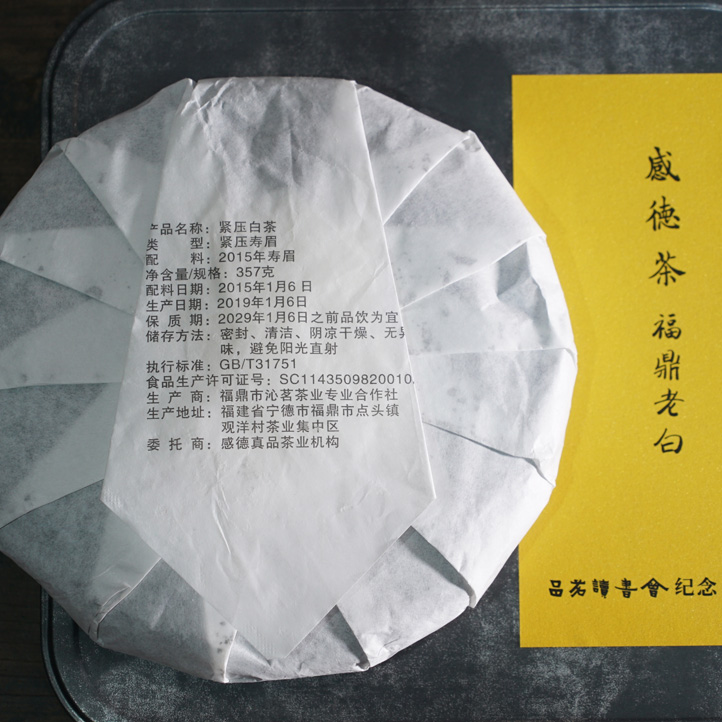 产品名称：紧压白茶
类　　型：紧压寿眉
配　　料：2015年寿眉
净含量/规格：357克
配料日期：2015年1月6日
生产日期：2019年1月6日
保 质 期：2029年1月6日之前品饮为宜
储存方法：密封、清洁、阴凉干燥、无异
味，避免阳光直射
执行标准：GB/T31751
食品生产许可证号：SC1143509820010
生 产 商：福鼎市沁茗茶业专业合作社
生产地址：福建省宁德市福鼎市点头镇
观洋村茶业集中区
委 托 商：感德真品茶业机构
感德茶 福鼎老白
品茗讀書會纪念